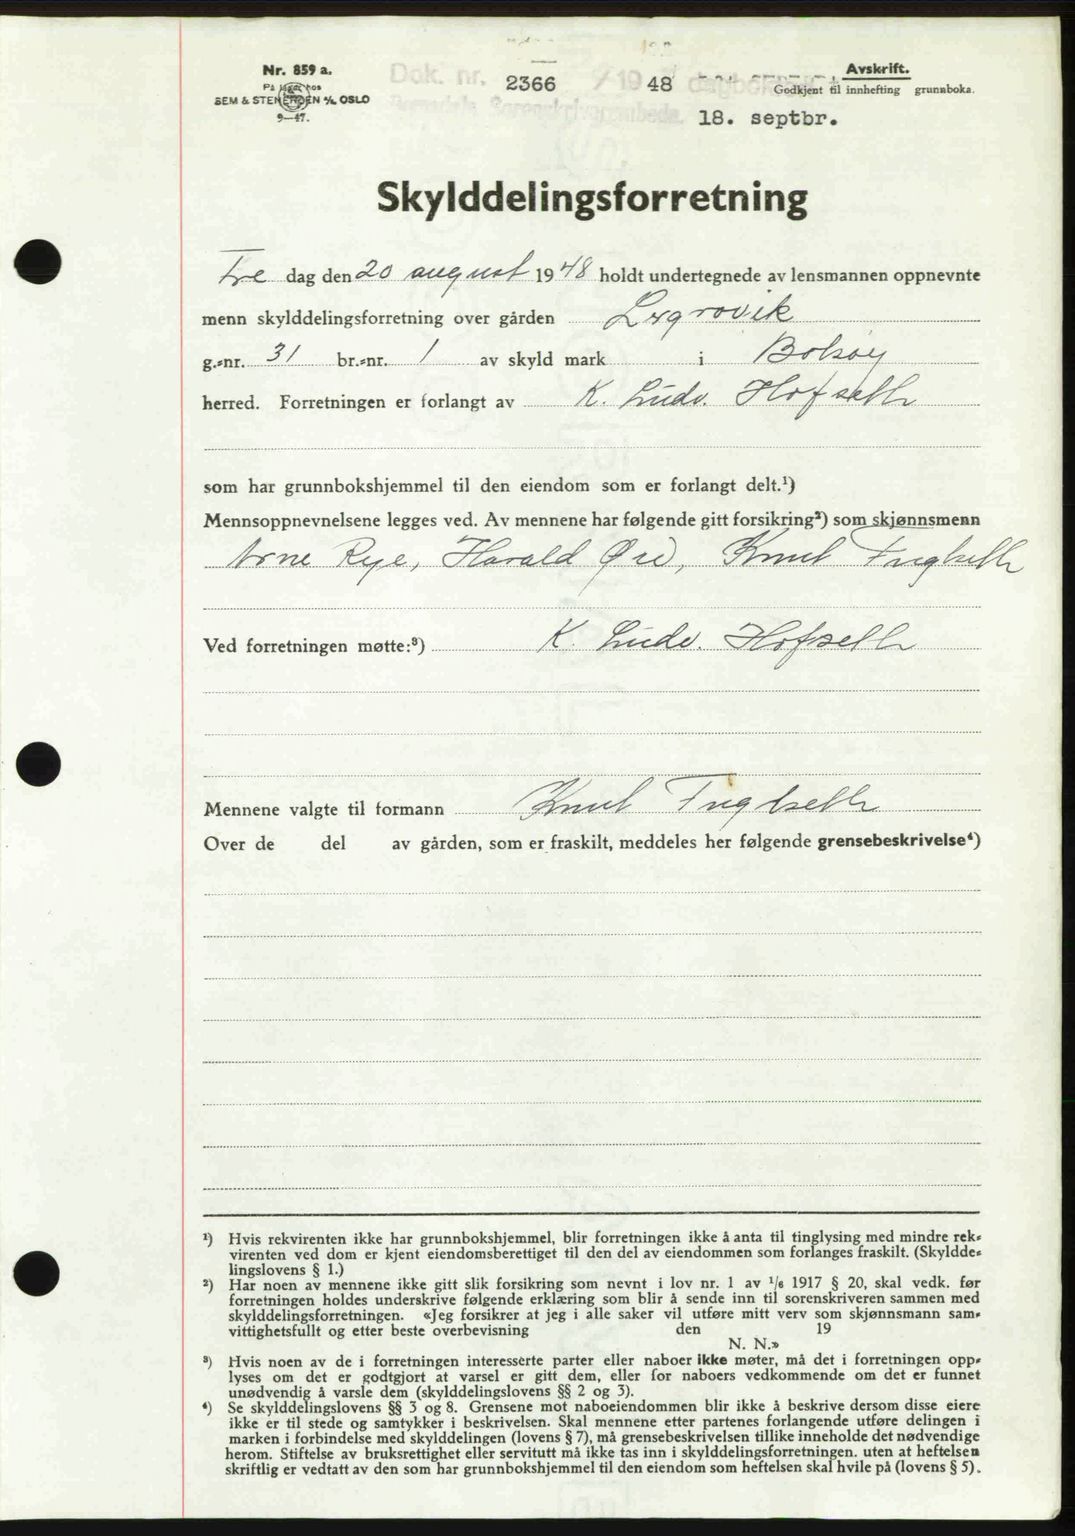 Nr. 859 a.
På lager hos
SEM & STENERSEN A/S OSLO
9—47.
Dok. nr. 2366 19 48 dagbok
Avskrift.
Godkjent til innhefting grunnboka.
18. septbr.
Skylddelingsforretning
Fre dag den 20 august 1948 holdt undertegnede av lensmannen oppnevnte
menn skylddelingsforretning over gården Lergrovik
g.-nr. 31 br.-nr. 1 av skyld mark i Bolsøy
herred. Forretningen er forlangt av K. Ludv. Hofseth
som har grunnbokshjemmel til den eiendom som er forlangt delt.¹)
Mennsoppnevnelsene legges ved. Av mennene har følgende gitt forsikring²) som skjønnsmenn
Arne Rye, Harald Øre, Knut Fuglseth
Ved forretningen møtte:³) K. Ludv. Hofseth
Mennene valgte til formann Knut Fuglseth
Over de del av gården, som er fraskilt, meddeles her følgende grensebeskrivelse⁴)
¹) Hvis rekvirenten ikke har grunnbokshjemmel, blir forretningen ikke å anta til tinglysing med mindre rek-
virenten ved dom er kjent eiendomsberettiget til den del av eiendommen som forlanges fraskilt. (Skyldde-
lingslovens § 1.)
²) Har noen av mennene ikke gitt slik forsikring som nevnt i lov nr. 1 av 1/6 1917 § 20, skal vedk. før
forretningen holdes underskrive følgende erklæring som blir å sende inn til sorenskriveren sammen med
skylddelingsforretningen. «Jeg forsikrer at jeg i alle saker vil utføre mitt verv som skjønnsmann sam-
vittighetsfullt og etter beste overbevisning den 19
N. N.»
³) Hvis noen av de i forretningen interesserte parter eller naboer ikke møter, må det i forretningen opp-
lyses om det er godtgjort at varsel er gitt dem, eller for naboers vedkommende om det er funnet
unødvendig å varsle dem (skylddelingslovens §§ 2 og 3).
⁴) Se skylddelingslovens §§ 3 og 8. Grensene mot naboeiendommen blir ikke å beskrive dersom disse eiere
ikke er til stede og samtykker i beskrivelsen. Skal mennene etter partenes forlangende utføre delingen i
marken i forbindelse med skylddelingen (lovens § 7), må grensebeskrivelsen tillike inneholde det nødvendige
herom. Stiftelse av bruksrettighet eller servitutt må ikke tas inn i skylddelingsforretningen. uten at heftelsen
skriftlig er vedtatt av den som har grunnbokshjemmel til den eiendom som heftelsen skal hvile på (lovens § 5).